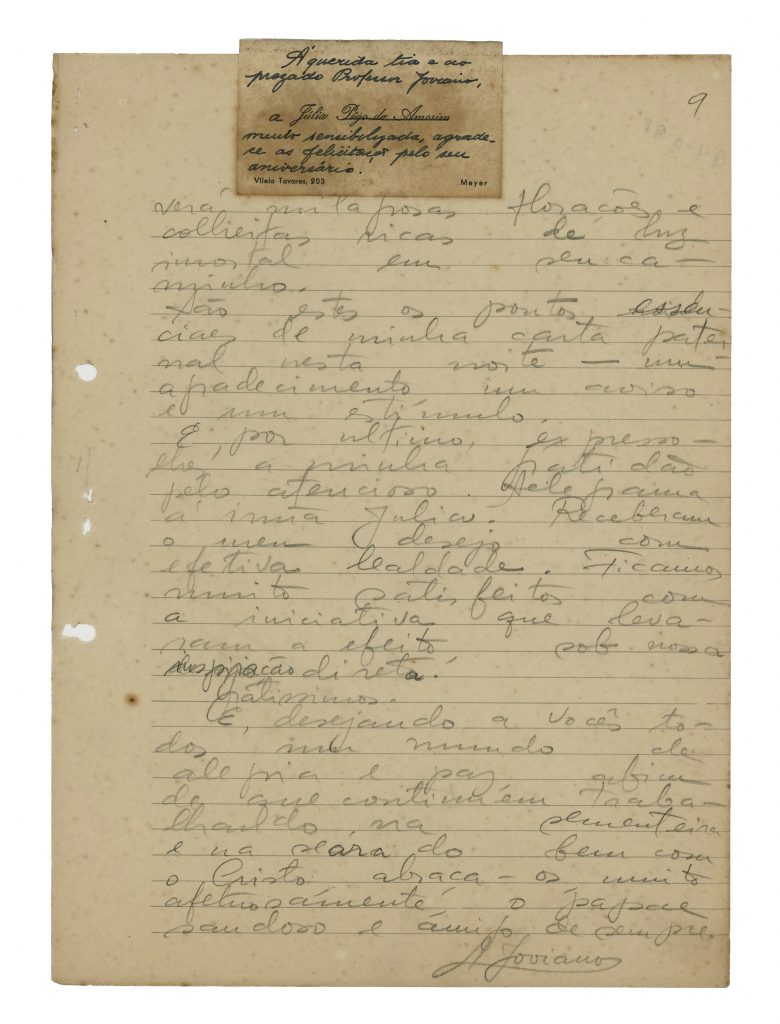 Á querida tia e ao
prezado Professor Joviano,
a Júlia Pêgo de Amorim
muito sensibilizada, agrade-
ce as felicitaçõ pelo seu
aniversário.
Vilela Tavares, 203 Meyer
9
verá milagrosas florações e
colheitas ricas de luz
imortal em seu ca-
minho.
São estes os pontos essen-
ciaes de minha carta pater
nal nesta noite — um
agradecimento um aviso
e um estímulo.
E, por ultimo, expresso-
lhe, a minha gratidão
pelo atencioso. telegrama
á irmã Julia. Receberam
o meu desejo com
efetiva lealdade. Ficamos
muito satisfeitos com
a iniciativa que leva-
ram a efeito, sob nossa
inspiração direta.
Gratissimos.
E, desejando a vocês to-
dos um mundo de
alegria e paz afim
de que continuem traba-
lhando, na sementeira
e na seara do bem com
o Cristo abraça-os muito
afetuosamente o papae
saudoso e amigo de sempre.
A. Joviano